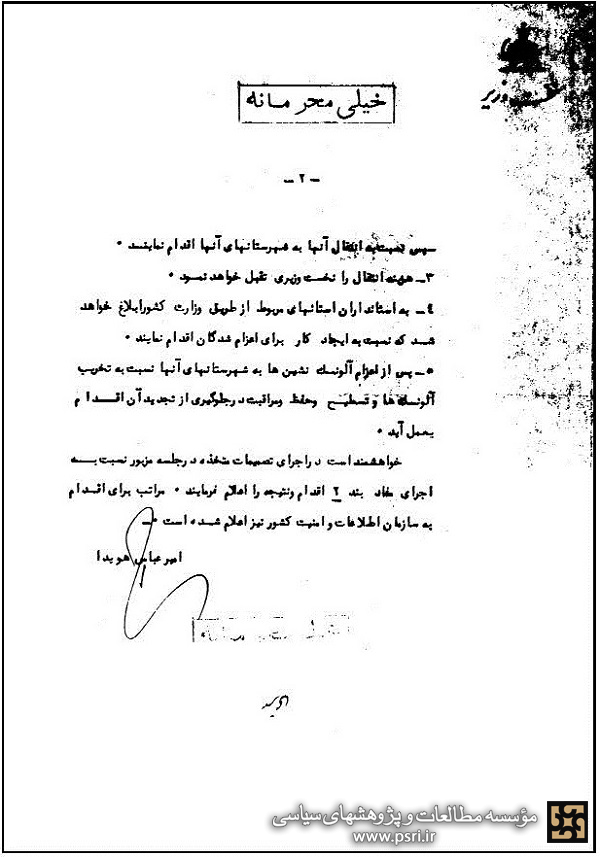 نخست وزیر
خیلی محرمانه
ـ ۲ ـ
سپس نسبت به انتقال آنها به شهرستانهای آنها اقدام نمایند ۰
۳ـ هزینه انتقال را نخست وزیری تقبل خواهد نمود ۰
٤ـ به استانداران استانهای مربوط از طریق وزارت کشور ابلاغ خواهد
شد که نسبت به ایجاد کار برای اعزام شدگان اقدام نمایند ۰
۵ـ پس از اعزام آلونک نشین ها به شهرستانهای آنها نسبت به تخریب
آلونک ها و تسطیح و حفظ و مراقبت در جلوگیری از تجدید آن اقدام
بعمل آید ۰
خواهشمند است در اجرای تصمیمات متخذه در جلسه مزبور نسبت به
اجرای مفاد بند ۲ اقدام و نتیجه را اعلام فرمایند ۰ مراتب برای اقدام
به سازمان اطلاعات و امنیت کشور نیز اعلام شده است ۰ـ
امیر عباس هویدا
مؤسسه مطالعات و پژوهشهای سیاسی
www.psri.ir